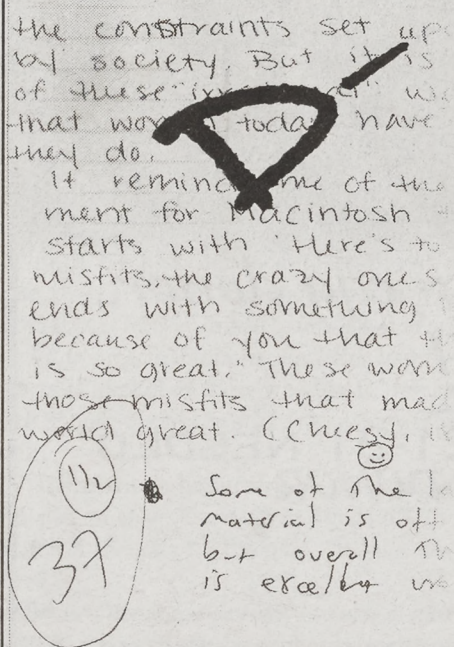 the constraints set up
by society. But it is
of these "
that women today have
they do.
It reminds me of the
ment for Macintosh
starts with "Here's to
misfits, the crazy ones
ends with something
because of you that th
is so great." These wom
those misfits that mad
world great. (Cheesy, 
11½
37
Some of the la
material is off
but overall Th
is excellent